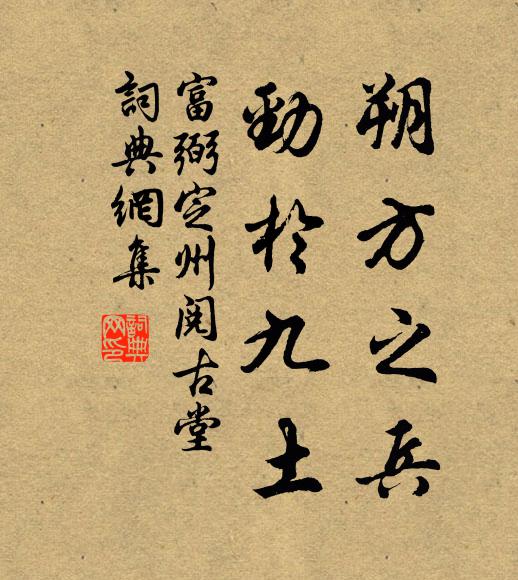 朔方之兵
勁於九土
富弼定州閱古堂
詞典網集
詞典網印